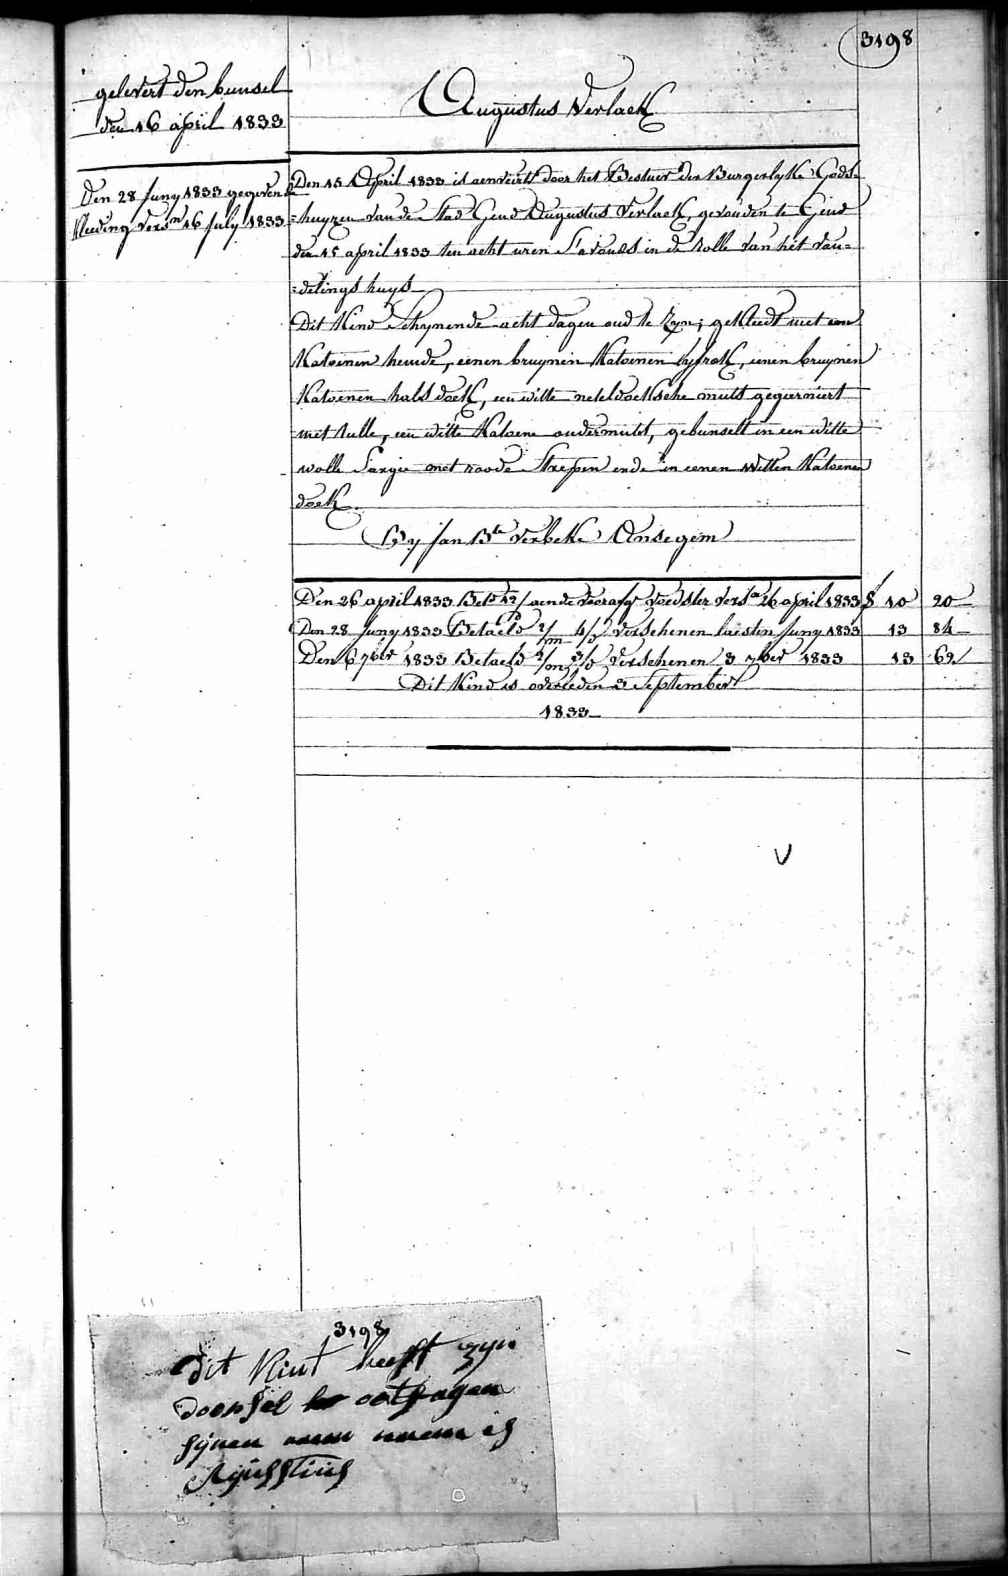 3198
gelevert den bunsel
den 16 april 1833
Augustus Verlaek
Den 28 Juny 1833 gegeven
kleeding vers.n 16 July 1833
Den 15 April 1833 is aenveirt door het Bestuer der Burgerlyke Gods=
=huyzen van de Stad Gend Augustus Verlaek, gevonden te Gend
den 15 april 1833 ten acht uren S'avonds in de rolle van het von=
=delings huys
Dit Kind schynende acht dagen oud te zyn; gekleedt met een
Katoenen hemde, eenen bruynen Katoenen lyfrok, eenen bruynen
Katoenen halsdoek, een witte neteldoeksche muts gegierniert
met tulle, een witte Katoene ondermuts, gebunselt in een witte
wolle Sargie met roode Strepen ende in eenen witten Katoenen
doek
By Jan Bte Verbeke Ansegem
Den 26 april 1833 Bet.d 12/ aende voorafg voedster vers.n 26 april 1833 £ 10 20
Den 28 Juny 1833 Betaeld 2/m 4/d verschenen laesten Juny 1833 13 84
Den 6 7ber 1833 Betaeld 2/m 3/d verschenen 3 7ber 1833 13 69
Dit Kind is overleden 3 September
1833
3198
dit Kint heeft zyn
doopsel ontfagen
sijnen naem es
Agusstius